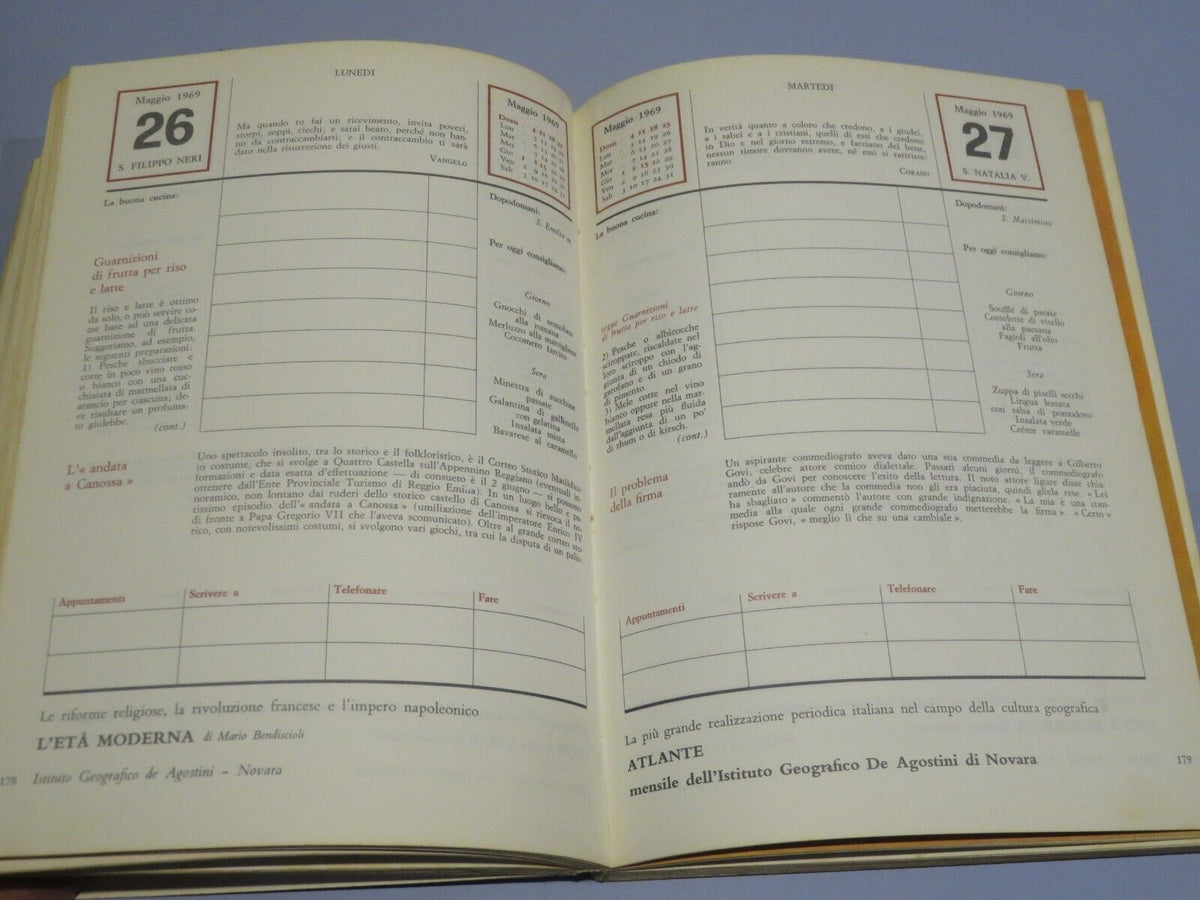 LUNEDI
Maggio 1969
26
S. FILIPPO NERI
Ma quando tu fai un ricevimento, invita poveri,
storpi, zoppi, ciechi; e sarai beato, perché non han-
no da contraccambiarti; e il contraccambio ti sarà
dato nella risurrezione dei giusti.
VANGELO
Maggio 1969
Dom 4 11 18 25
Lun
Mar
Mer
Gio
Ven
Sab 3 10 17 24 31
La buona cucina:
Guarnizioni
di frutta per riso
e latte
Il riso e latte è ottimo
da solo, o può servire co-
me base ad una delicata
guarnizione di frutta.
Suggeriamo, ad esempio,
le seguenti preparazioni:
1) Pesche sbucciate e
cotte in poco vino rosso
o bianco con una cuc-
chiaiata di marmellata di
arancio per ciascuna; de-
ve risultare un profuma-
to giulebbe.
(cont.)
Dopodomani:
S. Emilio m
Per oggi consigliamo:
Giorno
Gnocchi di semolino
alla romana
Merluzzo alla marsigliese
Cocomero farcito
Sera
Minestra di zucchine
passate
Galantina di gallinella
con gelatina
Insalata mista
Bavarese al caramello
L'« andata
a Canossa »
Uno spettacolo insolito, tra lo storico e il folkloristico, è il Corteo Storico Matildico
in costume, che si svolge a Quattro Castella sull'Appennino Reggiano (eventuali in-
formazioni e data esatta d'effettuazione — di consueto è il 2 giugno — si possono
ottenere dall'Ente Provinciale Turismo di Reggio Emilia). In un luogo bello e pa-
noramico, non lontano dai ruderi dello storico castello di Canossa si rievoca il no-
tissimo episodio dell'« andata a Canossa » (umiliazione dell'imperatore Enrico IV
di fronte a Papa Gregorio VII che l'aveva scomunicato). Oltre al grande corteo sto-
rico, con notevolissimi costumi, si svolgono vari giochi, tra cui la disputa di un palio.
Appuntamenti Scrivere a Telefonare Fare
Le riforme religiose, la rivoluzione francese e l'impero napoleonico
L'ETÀ MODERNA di Mario Bendiscioli
178 Istituto Geografico de Agostini – Novara
MARTEDI
Maggio 1969
Dom 4 11 18 25
Lun 5 12 19 26
Mar 6 13 20 27
Mer 7 14 21 28
Gio 1 8 15 22 29
Ven 2 9 16 23 30
Sab 3 10 17 24 31
In verità quanto a coloro che credono, a i giudei,
a i sabei e a i cristiani, quelli di essi che credono
in Dio e nel giorno estremo, e facciano del bene,
nessun timore dovranno avere, né essi si rattriste-
ranno.
CORANO
Maggio 1969
27
S. NATALIA V.
La buona cucina:
segue Guarnizioni
di frutta per riso e latte
2) Pesche o albicocche
sciroppate, riscaldate nel
loro sciroppo con l'ag-
giunta di un chiodo di
garofano e di un grano
di pimento.
3) Mele cotte nel vino
bianco oppure nella mar-
mellata resa più fluida
dall'aggiunta di un po'
di rhum o di kirsch.
(cont.)
Dopodomani:
S. Massimino
Per oggi consigliamo:
Giorno
Soufflé di patate
Costolette di vitello
alla paesana
Fagioli all'olio
Frutta
Sera
Zuppa di piselli secchi
Lingua lessata
con salsa di pomodoro
Insalata verde
Créme caramelle
Il problema
della firma
Un aspirante commediografo aveva dato una sua commedia da leggere a Gilberto
Govi, celebre attore comico dialettale. Passati alcuni giorni, il commediografo
andò da Govi per conoscere l'esito della lettura. Il noto attore ligure disse chia-
ramente all'autore che la commedia non gli era piaciuta, quindi gliela rese. « Lei
ha sbagliato » commentò l'autore con grande indignazione. « La mia è una com-
media alla quale ogni grande commediografo metterebbe la firma ». « Certo »
rispose Govi, « meglio lì che su una cambiale ».
Appuntamenti Scrivere a Telefonare Fare
La più grande realizzazione periodica italiana nel campo della cultura geografica
ATLANTE
mensile dell'Istituto Geografico De Agostini di Novara
179